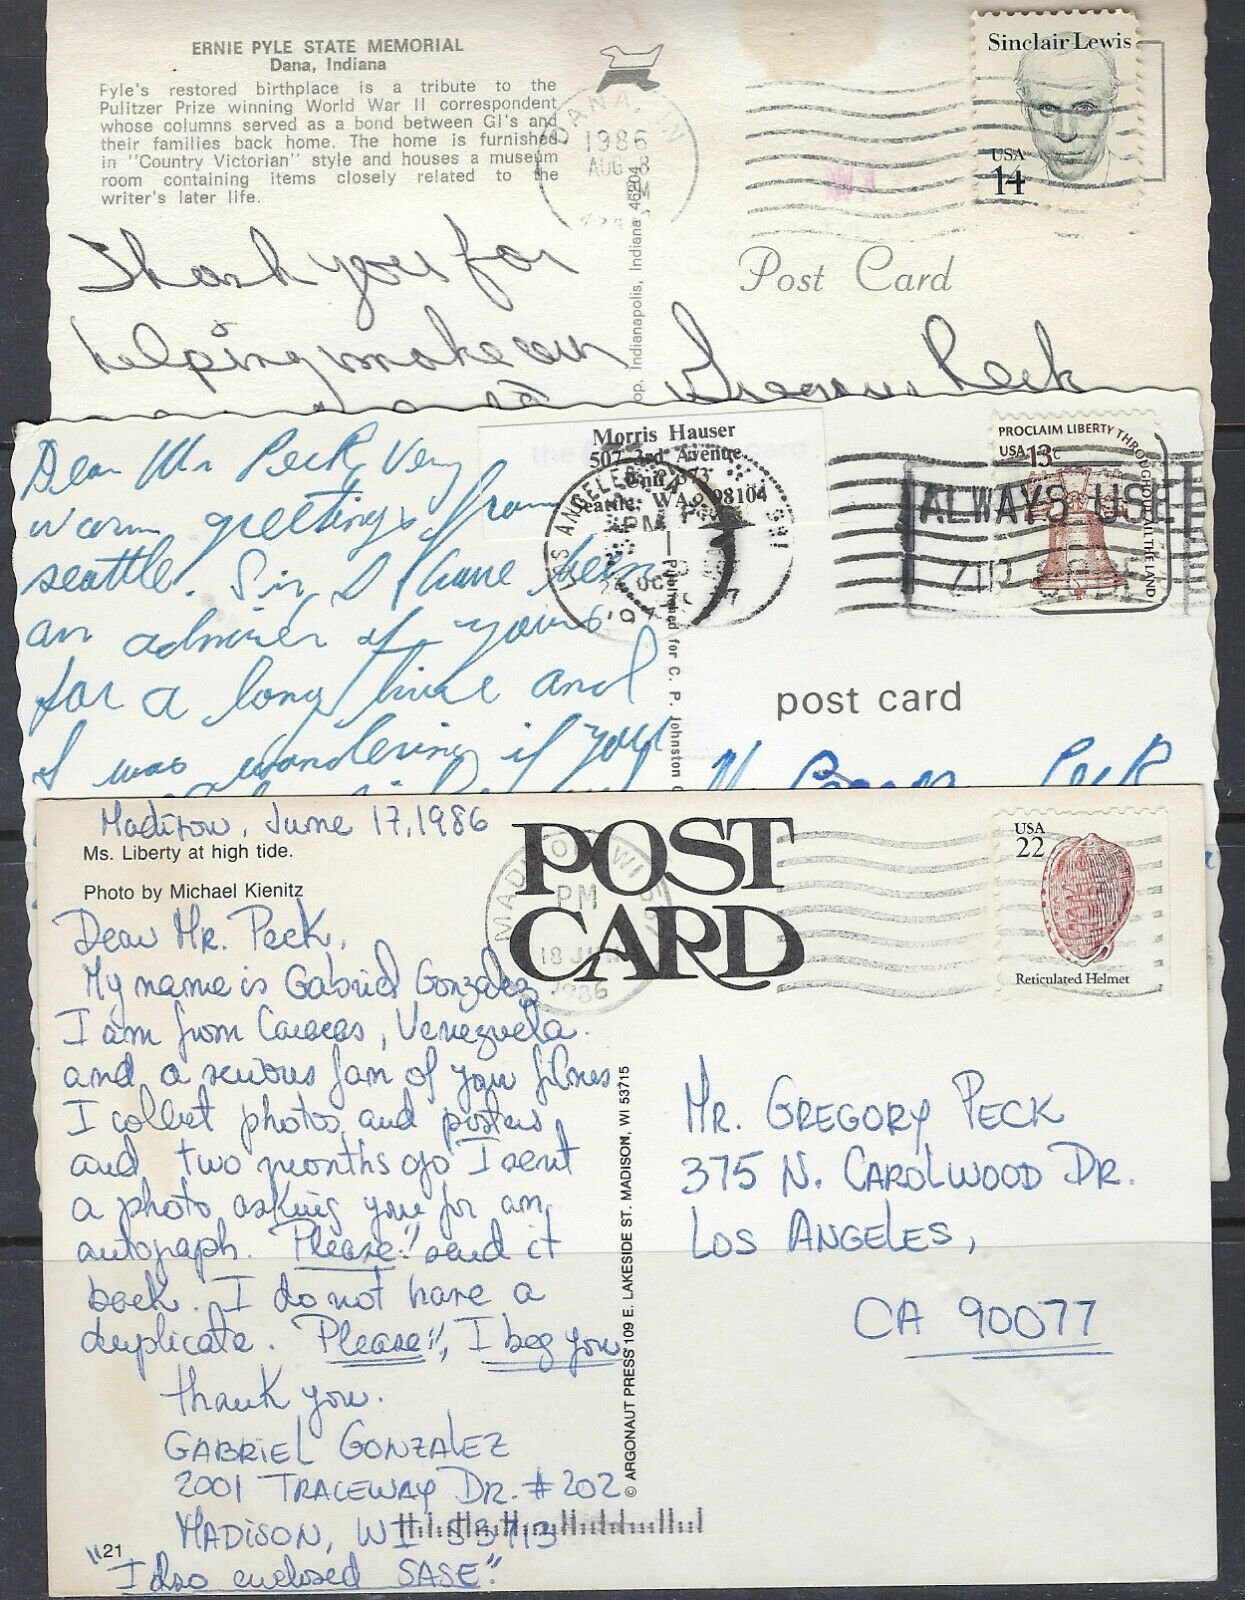 ERNIE PYLE STATE MEMORIAL
Dana, Indiana
Pyle's restored birthplace is a tribute to the
Pulitzer Prize winning World War II correspondent
whose columns served as a bond between GI's and
their families back home. The home is furnished
in "Country Victorian" style and houses a museum
room containing items closely related to the
writer's later life.
DANA, IN
1986
AUG 8
Sinclair Lewis
USA
14
Post Card
op, Indianapolis, Indiana 46204
Thank you for
helping make our
Gregory Peck
Morris Hauser
507 3rd Avenue
Seattle, WA 98104
LOS ANGELES
PM
PROCLAIM LIBERTY THROUGHOUT ALL THE LAND
USA 13c
ALWAYS USE
ZIP
Dear Mr Peck, Very
warm greetings from
seattle. Sir, I have been
an admirer of yours
for a long time and
I was wondering if you
Published for C. P. Johnston
post card
Peck
Madison, June 17, 1986
Ms. Liberty at high tide.
Photo by Michael Kienitz
POST
CARD
MADISON WI 537
PM
18 JUN
1986
USA
22
Reticulated Helmet
Dear Mr. Peck,
My name is Gabriel Gonzalez.
I am from Caracas, Venezuela.
and a serious fan of your films
I collect photos and posters
and two months ago I sent
a photo asking you for an
autograph. Please!! send it
back. I do not have a
duplicate. Please!!, I beg you
thank you.
GABRIEL GONZALEZ
2001 TRACEWAY DR. #202
MADISON, WI 53713
21
"I also enclosed SASE"
© ARGONAUT PRESS 109 E. LAKESIDE ST. MADISON, WI 53715
MR. GREGORY PECK
375 N. CAROLWOOD DR.
LOS ANGELES,
CA 90077